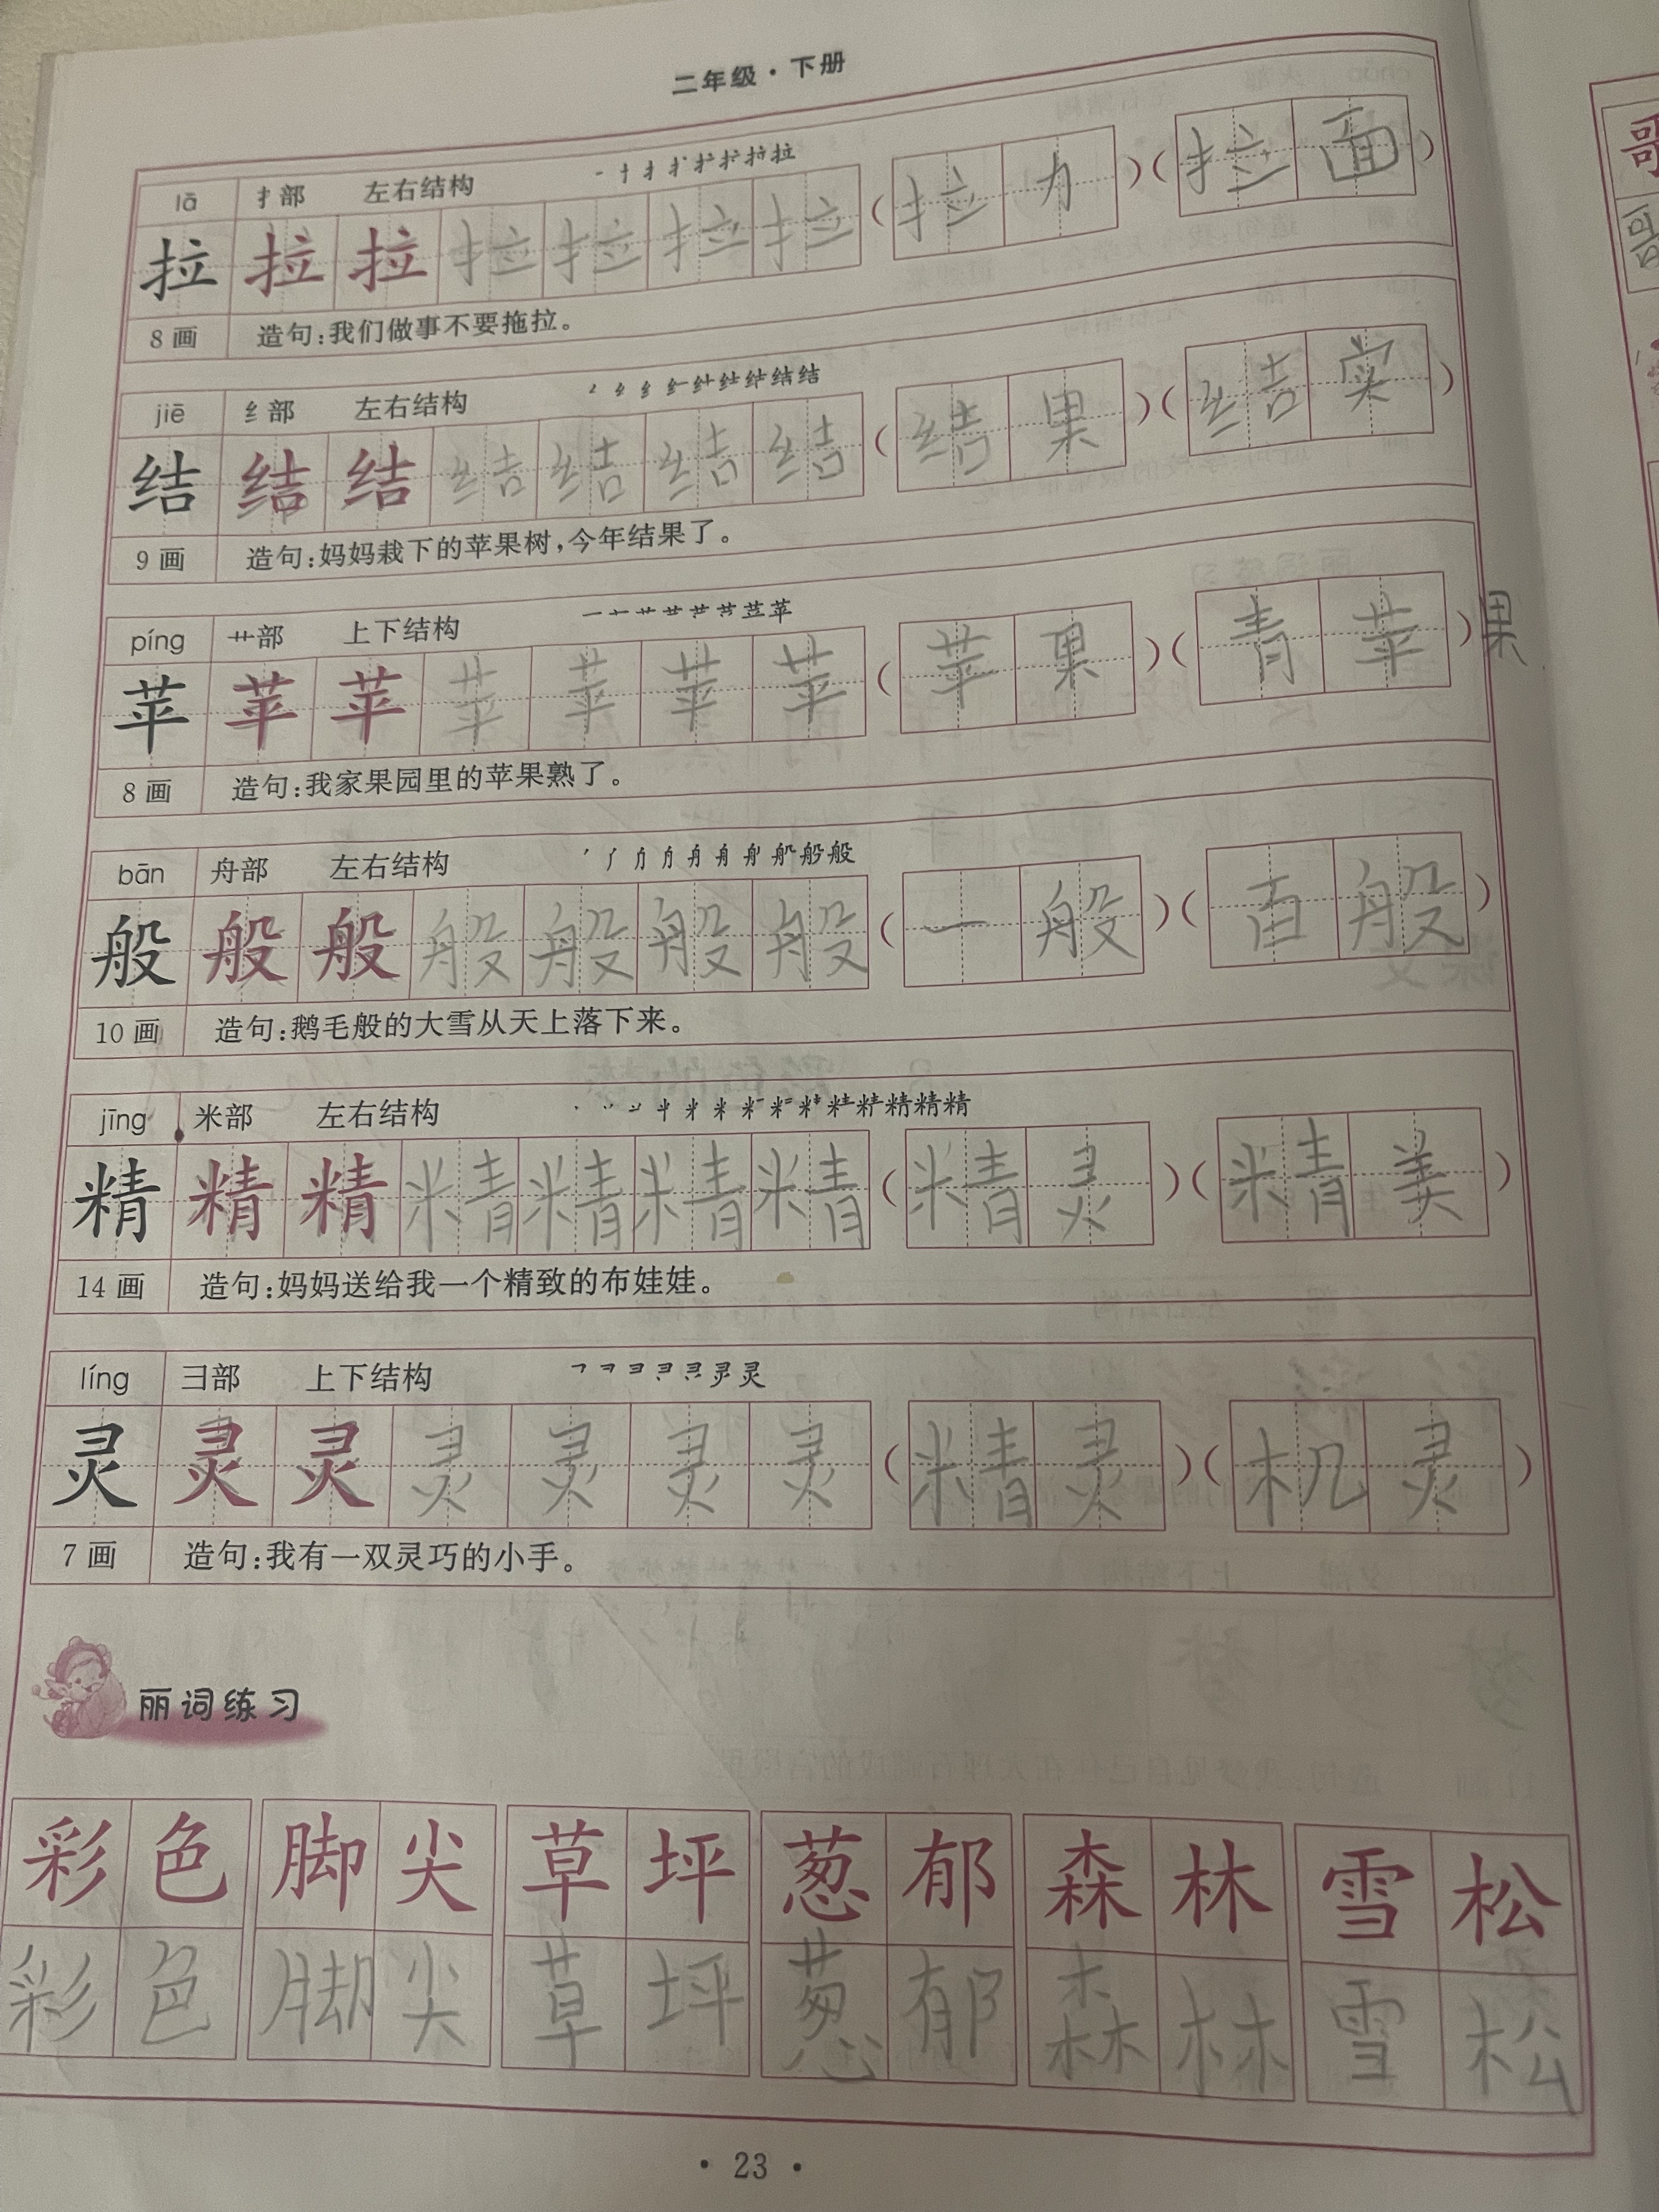 二年级·下册
lā 扌部 左右结构
拉 拉 拉 拉 拉 拉 拉 (拉力)(拉面)
8画 造句:我们做事不要拖拉。
jiē 纟部 左右结构
结 结 结 结 结 结 结 (结果)(结实)
9画 造句:妈妈栽下的苹果树,今年结果了。
píng 艹部 上下结构
苹 苹 苹 苹 苹 苹 苹 (苹果)(青苹)果
8画 造句:我家果园里的苹果熟了。
bān 舟部 左右结构
般 般 般 般 般 般 般 (一般)(百般)
10画 造句:鹅毛般的大雪从天上落下来。
jīng 米部 左右结构
精 精 精 精 精 精 精 (精灵)(精美)
14画 造句:妈妈送给我一个精致的布娃娃。
líng 彐部 上下结构
灵 灵 灵 灵 灵 灵 灵 (精灵)(机灵)
7画 造句:我有一双灵巧的小手。
丽词练习
彩色 脚尖 草坪 葱郁 森林 雪松
彩色 脚尖 草坪 葱郁 森林 雪松
·23·